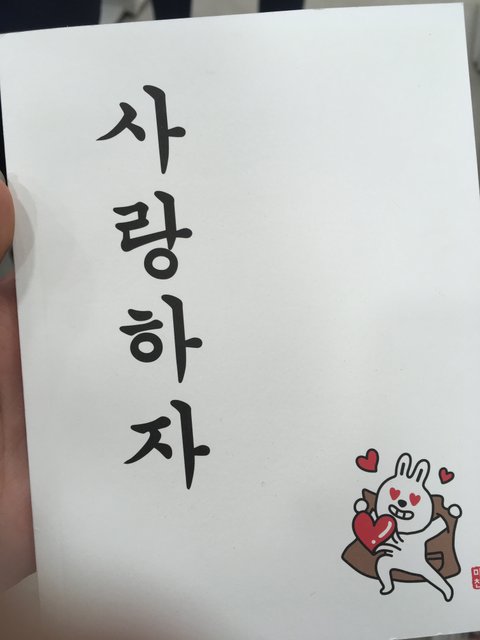 사랑하자
미친